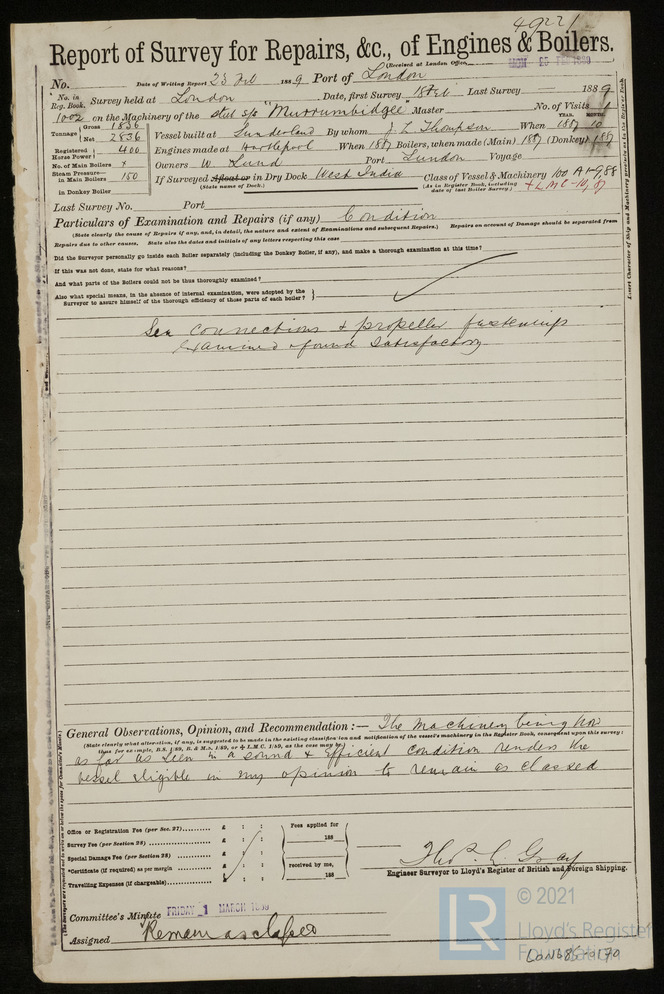 49221
Report of Survey for Repairs, &c., of Engines & Boilers.
(Received at London Office
MON 25 FEB 1889
No. Date of Writing Report 23 Feb 1889 Port of London
No. in Reg. Book. Survey held at London Date, first Survey Last Survey 1889
1002 on the Machinery of the Steel s/s "Murrumbidgee" Master No. of Visits 1
Tonnage Gross 1836
Net 2836
Vessel built at Sunderland By whom J. L. Thompson When 1887 YEAR. MONTH. 10
Registered Horse Power 400
Engines made at Hartlepool When 1887 Boilers, when made (Main) 1887 (Donkey) 1887
No. of Main Boilers
Owners W. Lund Port London Voyage
Steam Pressure— in Main Boilers 150
If Surveyed Afloat or in Dry Dock West India
(State name of Dock.)
Class of Vessel & Machinery 100 A1-9,88
(As in Register Book, including date of last Boiler Survey.)
+LMC-10,87
in Donkey Boiler
Last Survey No. Port
Particulars of Examination and Repairs (if any) Condition
(State clearly the cause of Repairs if any, and, in detail, the nature and extent of Examinations and subsequent Repairs.) Repairs on account of Damage should be separated from
Repairs due to other causes. State also the dates and initials of any letters respecting this case
Did the Surveyor personally go inside each Boiler separately (including the Donkey Boiler, if any), and make a thorough examination at this time?
If this was not done, state for what reasons?
And what parts of the Boilers could not be thus thoroughly examined?
Also what special means, in the absence of internal examination, were adopted by the
Surveyor to assure himself of the thorough efficiency of those parts of each boiler?
Sea connections & propeller fastenings
examined & found satisfactory
General Observations, Opinion, and Recommendation:— The machinery being now
(State clearly what alteration, if any, is suggested to be made in the existing classification and notification of the vessel's machinery in the Register Book, consequent upon this survey;
thus for example, B.S. 1/89, B. & M.S. 1/89, or L.M.C. 1/89, as the case may be.)
as far as seen in a sound & efficient condition renders the
vessel eligible in my opinion to remain as classed
Office or Registration Fee (per Sec. 27) £ : :
Survey Fee (per Section 28) £ : :
Special Damage Fee (per Section 28) £ : :
*Certificate (if required) as per margin £ : :
Travelling Expenses (if chargeable) £ : :
Fees applied for
188
received by me,
188
Thos. L. Gray
Engineer Surveyor to Lloyd's Register of British and Foreign Shipping.
Committee's Minute FRIDAY 1 MARCH 1889
Assigned Remain as classed
© 2021
LR
Lloyd's Register
Foundation